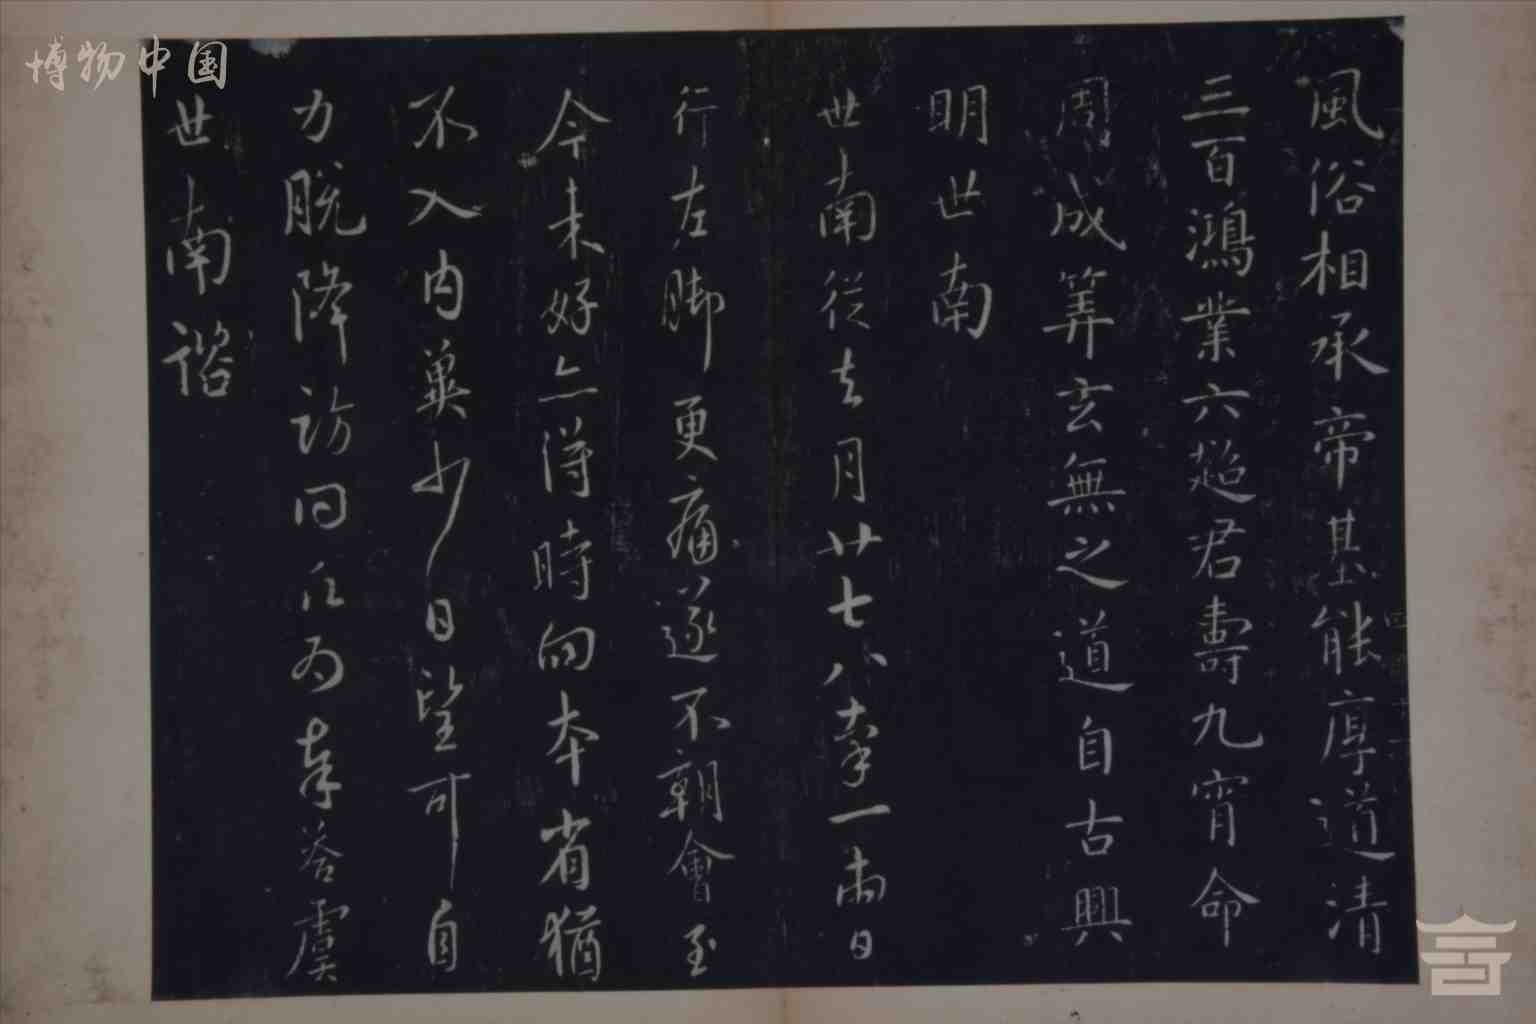 博物中国
風俗相承帝基能厚道清
三百鴻業六超君壽九宵命
周成筭玄無之道自古興
明世南
世南從去月廿七八率一兩日
行左脚更痛遂不朝會至
今未好亦得時向本省猶
不入內冀少日望可自
力脫降訪問願為奉答虞
世南諮